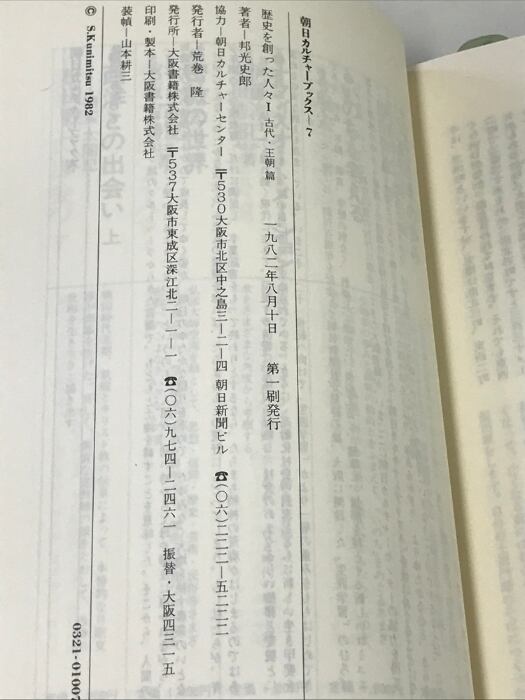 朝日カルチャーブックス―7
歴史を創った人々Ⅰ 古代・王朝篇 一九八二年八月十日 第一刷発行
著者―邦光史郎
協力―朝日カルチャーセンター 〒530大阪市北区中之島三―二―四 朝日新聞ビル ☎(〇六)二二二―五二二二
発行者―荒巻 隆
発行所―大阪書籍株式会社 〒537大阪市東成区深江北二―一―一 ☎(〇六)九七四―二四六一 振替・大阪四三一五
印刷・製本―大阪書籍株式会社
装幀―山本耕三
© S.Kunimitsu 1982
0321-01007